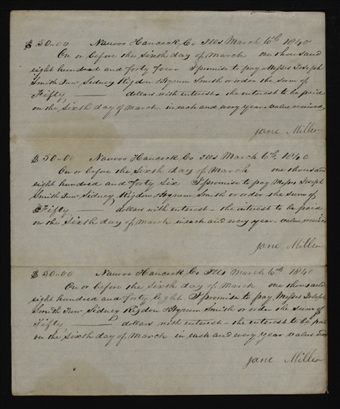 $ 50.00 Nauvoo Hancock Co Ills March 6th 1840
On or before the Sixth day of March one thousand
eight hundred and forty four I promise to pay Messrs Joseph
Smith Jun Sidney Rigdon Hyrum Smith or order the sum of
Fifty dollars with interest - the interest to be paid
on the Sixth day of March in each and every year value received
Jane Miller
$ 50.00 Nauvoo Hancock Co Ills March 6th 1840
On or before the Sixth day of March one thousand
eight hundred and forty Six I promise to pay Messrs Joseph
Smith Jun Sidney Rigdon Hyrum Smith or order the sum of
Fifty dollars with interest - the interest to be paid
on the Sixth day of March in each and every year value received
Jane Miller
$ 50.00 Nauvoo Hancock Co Ills March 6th 1840
On or before the Sixth day of March one thousand
eight hundred and forty Eight I promise to pay Messrs Joseph
Smith Jun Sidney Rigdon Hyrum Smith or order the sum of
Fifty dollars with interest - the interest to be paid
on the Sixth day of March in each and every year value
Jane Miller